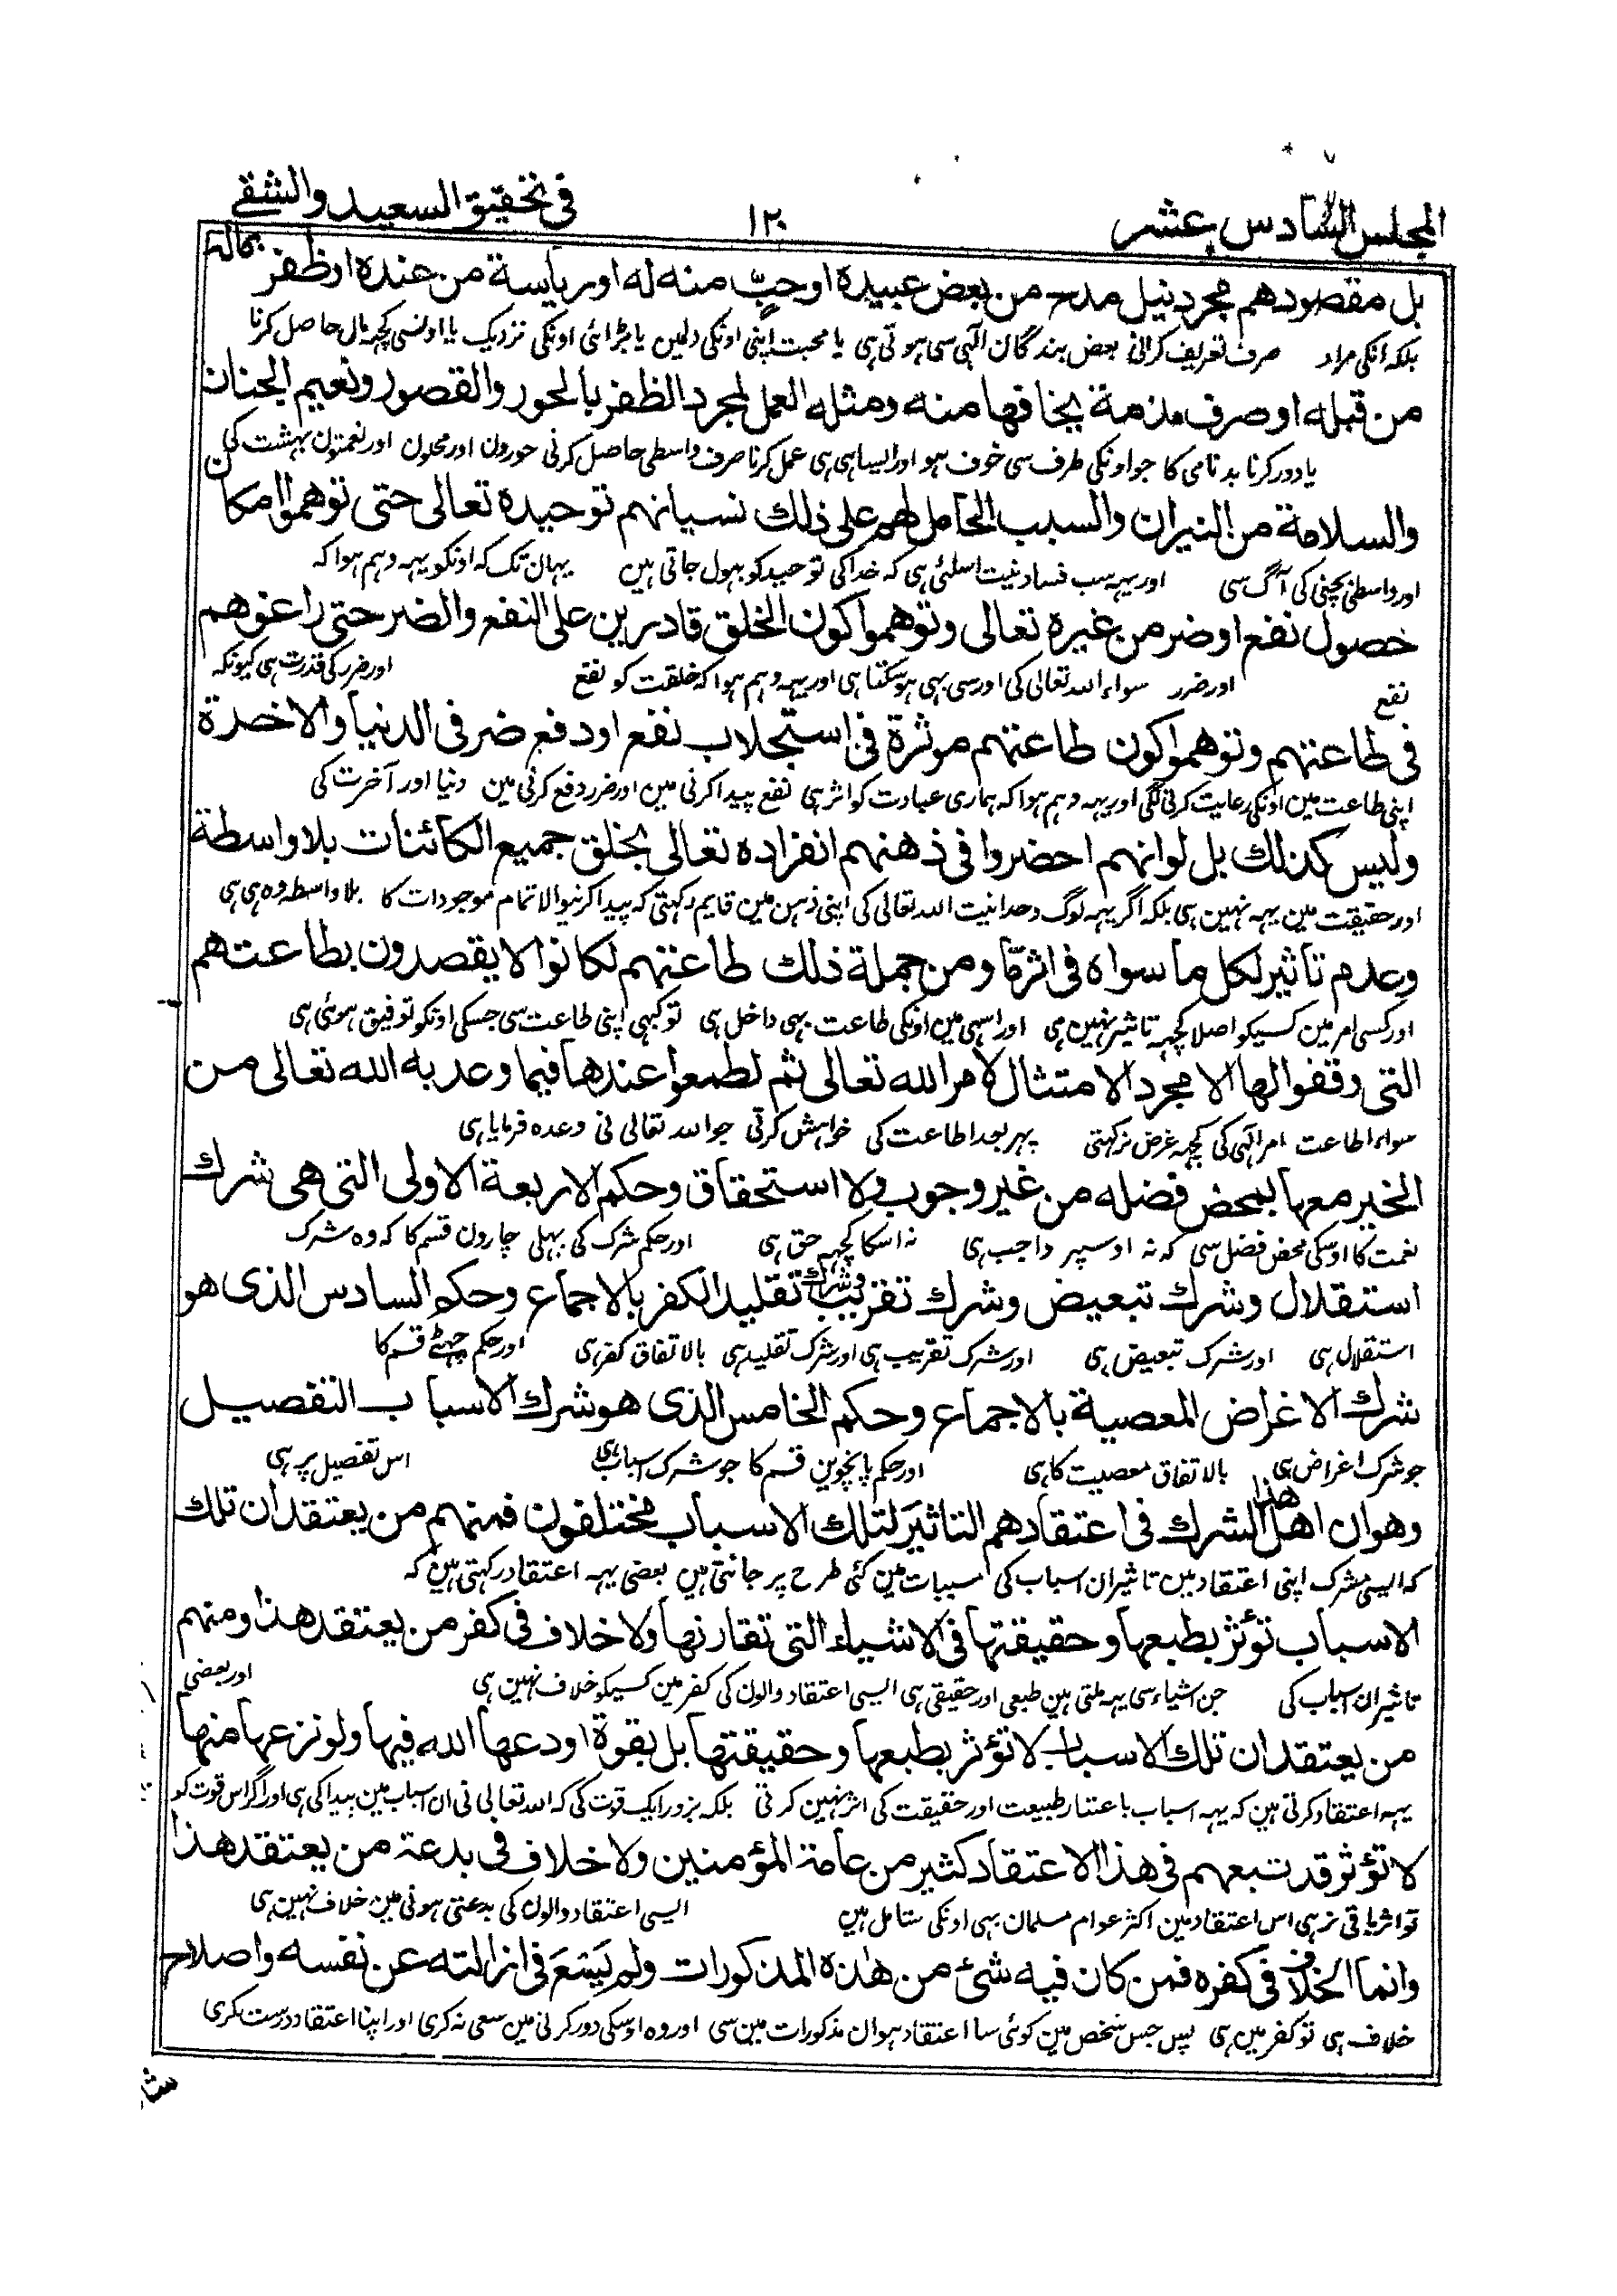 المجلس السادس عشر
١٢٠
فى تحقيق السعيد والشقے
بل مقصودهم مجرد نيل مدح من بعض عبيده او حبّ منه له او رياسة من عنده او ظفر بمالٍ
بلکہ انکی مراد صرف تعریف کرانی بعض بندگان الٰہی سی ہوتی ہی یا محبت اپنی اونکی دلمین یا بڑائی اونکی نزدیک یا اونسی کچہ مال حاصل کرنا
من قبله او صرف مذمة يخافها منه ومثله العمل لمجرد الظفر بالحور والقصور ونعيم الجنان
یا دور کرنا بدنامی کا جو اونکی طرف سی خوف ہو اور ایسا ہی ہی عمل کرنا صرف واسطی حاصل کرنی حورون اور محلون اور نعمتون بہشت کی
والسلامة من النيران والسبب الحامل لهم على ذلك نسيانهم توحيده تعالى حتى توهموا امكان
اور واسطی بچنی کی آگ سی اور یہہ سب فساد نیت اسلئی ہی کہ خدا کی توحید کو بہول جاتی ہین یہان تک کہ اونکو یہہ وہم ہوا کہ
حصول نفع او ضر من غيره تعالى وتوهموا كون الخلق قادرين على النفع والضر حتى راعوهم
نفع اور ضرر سواء اللہ تعالی کی اور سی بہی ہو سکتا ہی اور یہہ وہم ہوا کہ خلقت کو نفع اور ضرر کی قدرت ہی کیونکہ
فى طاعتهم وتوهموا كون طاعتهم موثرة فى استجلاب نفع او دفع ضر فى الدنيا والاخرة
اپنی طاعت مین اونکی رعایت کرنی لگی اور یہہ وہم ہوا کہ ہماری عبادت کو اثر ہی نفع پیدا کرنی مین اور ضرر دفع کرنی مین دنیا اور آخرت کی
وليس كذلك بل لو انهم احضروا فى ذهنهم انفراده تعالى بخلق جميع الكائنات بلا واسطة
اور حقیقت مین یہہ نہین ہی بلکہ اگر یہہ لوگ وحدانیت اللہ تعالی کی اپنی ذہن مین قایم رکہتی کہ پیدا کرنیوالا تمام موجودات کا بلا واسطہ وہ ہی ہی
وعدم تاثير لكل ما سواه فى اثرمّا ومن جملة ذلك طاعتهم لكانوا لا يقصدون بطاعتهم
اور کسی امر مین کسیکو اصلا کچہہ تاثیر نہین ہی اور اسہی مین اونکی طاعت بہی داخل ہی تو کبہی اپنی طاعت سی جسکی اونکو توفیق ہوئی ہی
التى وقفوا لها الا مجرد الامتثال لامر الله تعالى ثم لطمعوا عندها فيما وعد به الله تعالى من
سواء اطاعت امر الٰہی کی کچہہ غرض نرکہتی پہر بعد اطاعت کی خواہش کرتی جو اللہ تعالی نی وعدہ فرمایا ہی
الخير معها بمحض فضله من غير وجوب ولا استحقاق وحكم الاربعة الاولى التى هى شرك
نعمت کا اوسکی محض فضل سی کہ نہ اوسپر واجب ہی نہ اسکا کچہہ حق ہی اور حکم شرک کی پہلی چارون قسم کا کہ وہ شرک
استقلال وشرك تبعيض وشرك تقريب وشرك تقليد الكفر بالاجماع وحكم السادس الذى هو
استقلال ہی اور شرک تبعیض ہی اور شرک تقریب ہی اور شرک تقلید ہی بالاتفاق کفر ہی اور حکم چہٹے قسم کا
شرك الاغراض المعصية بالاجماع وحكم الخامس الذى هو شرك الاسباب التفصيل
جو شرک اغراض ہی بالاتفاق معصیت کا ہی اور حکم پانچوین قسم کا جو شرک اسباب ہی اس تفصیل پر ہی
وهو ان اهل هذا الشرك فى اعتقادهم التاثيرَ لتلك الاسباب مختلفون فمنهم من يعتقد ان تلك
کہ ایسی مشرک اپنی اعتقاد مین تاثیر ان اسباب کی مسببات مین کئی طرح پر جانتی ہین بعضی یہہ اعتقاد رکہتی ہین کہ
الاسباب تؤثر بطبعها وحقيقتها فى الاشياء التى تقارنها ولا خلاف فى كفر من يعتقد هذا ومنهم
تاثیر ان اسباب کی جن اشیاء سی یہہ ملتی ہین طبعی اور حقیقی ہی ایسی اعتقاد والون کی کفر مین کسیکو خلاف نہین ہی اور بعضی
من يعتقد ان تلك الاسباب لا تؤثر بطبعها وحقيقتها بل بقوة اودعها الله فيها ولو نزعها منها
یہہ اعتقاد کرتی ہین کہ یہہ اسباب باعتبار طبیعت اور حقیقت کی اثر نہین کرتی بلکہ بزور ایک قوت کی کہ اللہ تعالی نی ان اسباب مین پیدا کی ہی اور اگر اس قوت کو
لا تؤثر قد تبعهم فى هذا الاعتقاد كثير من عامة المؤمنين ولا خلاف فى بدعة من يعتقد هذا
تو اثر باقی نرہی اس اعتقاد مین اکثر عوام مسلمان بہی اونکی شامل ہین ایسی اعتقاد والون کی بدعتی ہونی مین خلاف نہین ہی
وانما الخلاف فى كفره فمن كان فيه شئ من هذه المذكورات ولم يَسْعَ فى ازالته عن نفسه واصلاح
خلاف ہی تو کفر مین ہی پس جس شخص مین کوئی سا اعتقاد ہو ان مذکورات مین سی اور وہ اوسکی دور کرنی مین سعی نہ کری اور اپنا اعتقاد درست نکری